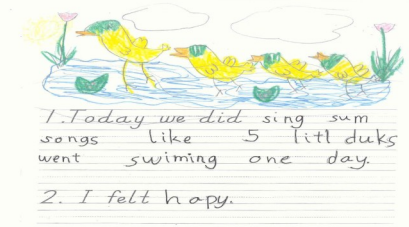 1. Today we did sing sum
songs like 5 litl duks
went swiming one day.
2. I felt hapy.